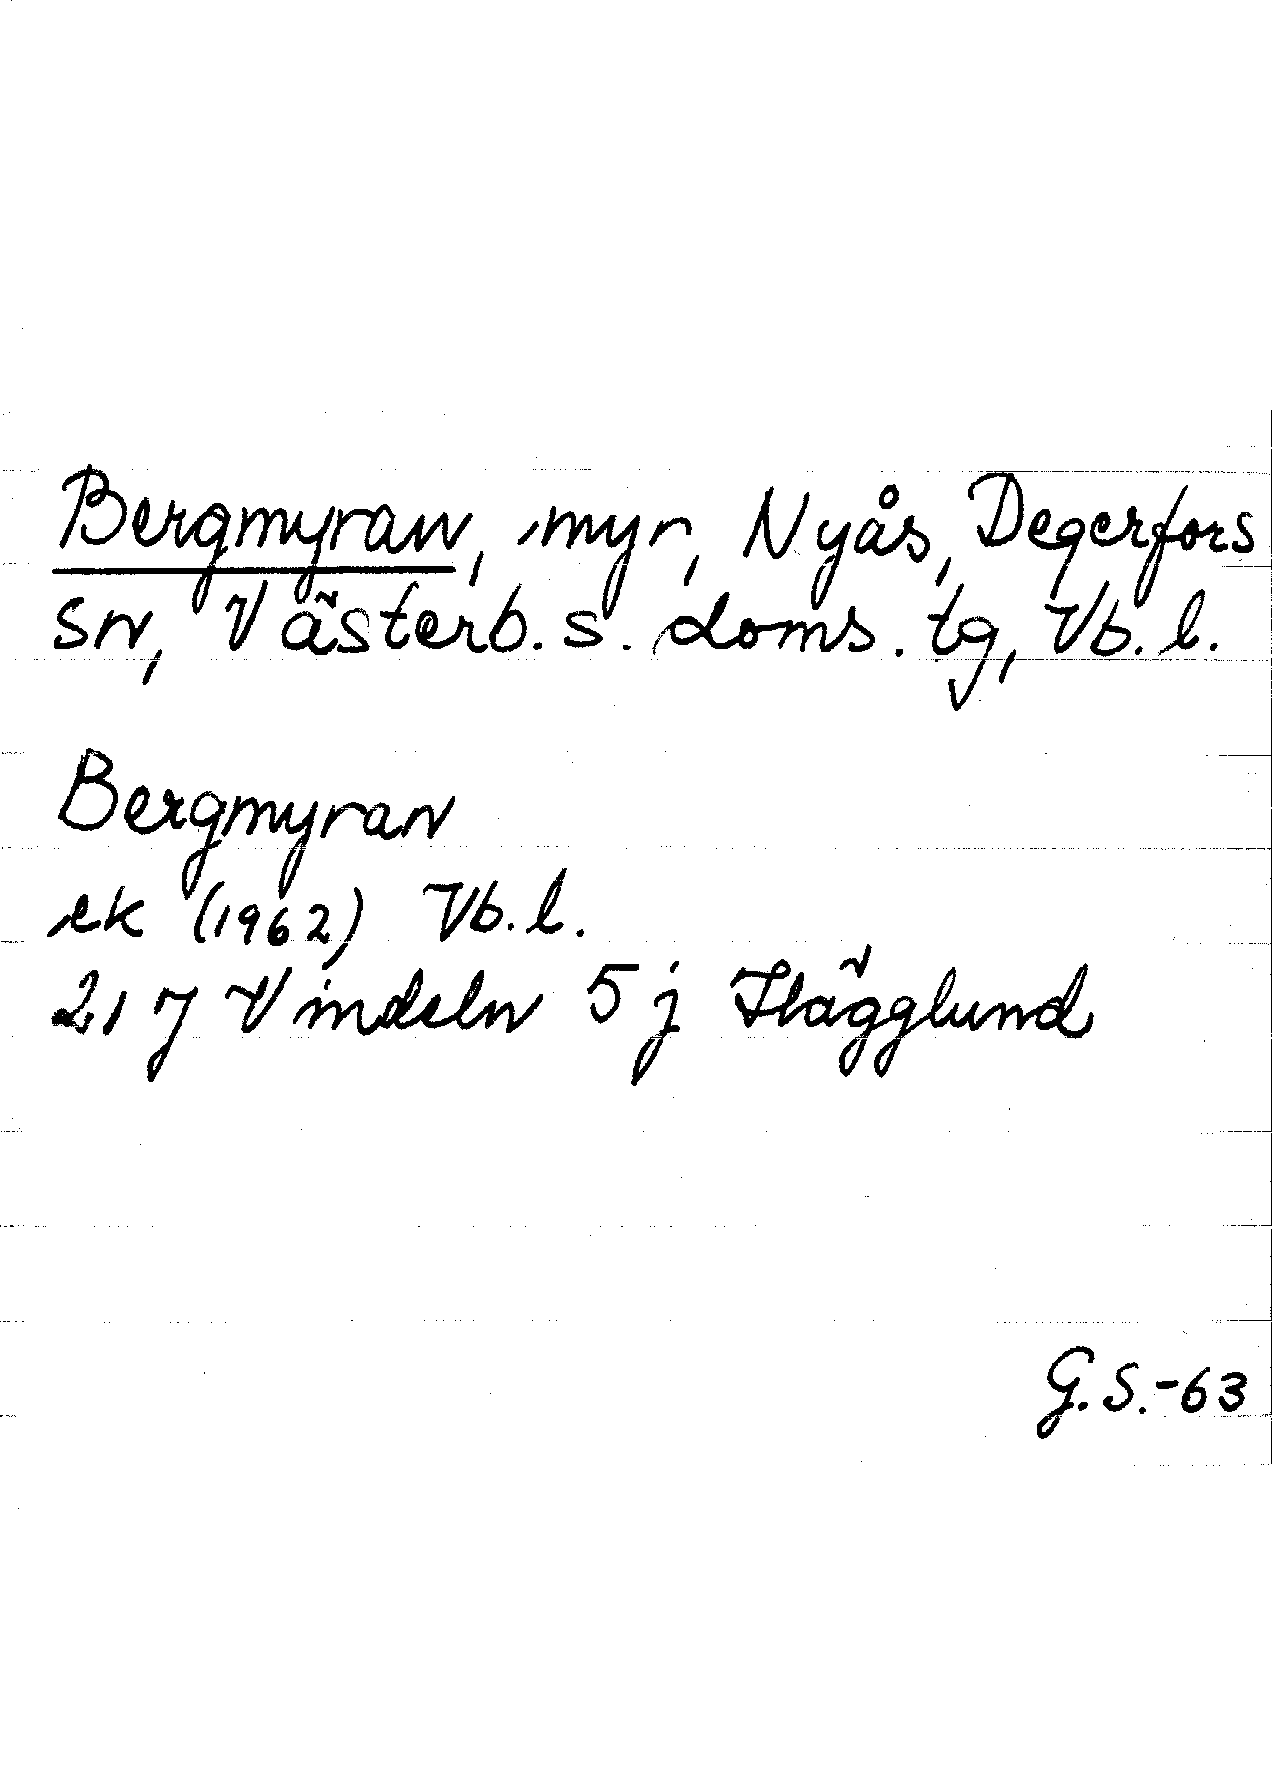 Bergmyran, myr, Nyås, Degerfors
sn, Västerb. s. doms. tg, Vb. l.
Bergmyran
ek (1962) Vb. l.
217 Vindeln 5 j Hägglund
G.S.-63